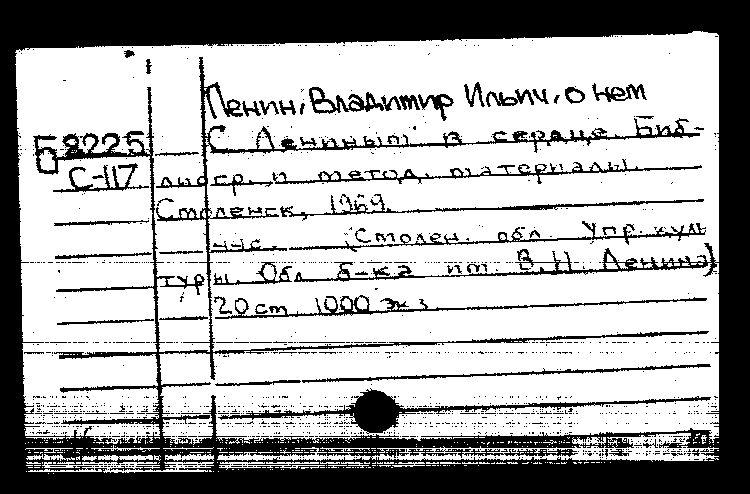 Ленин, Владимир Ильич, о нем
Б 8225
С-117
С Лениным в сердце. Биб-
лиогр. и метод. материалы.
Смоленск, 1969.
44с. (Смолен. обл. Упр. куль
туры. Обл. б-ка им. В.И. Ленина)
20 см. 1000 экз